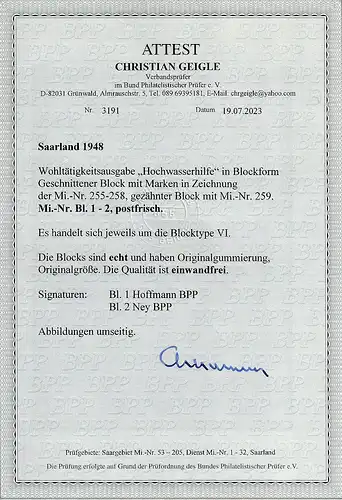 ATTEST
CHRISTIAN GEIGLE
Verbandsprüfer
im Bund Philatelistischer Prüfer e. V.
D-82031 Grünwald, Almrauschstr. 5, Tel. 089 69395181, E-Mail. chrgeigle@yahoo.com
Nr. 3191 Datum 19.07.2023
Saarland 1948
Wohltätigkeitsausgabe „Hochwasserhilfe" in Blockform
Geschnittener Block mit Marken in Zeichnung
der Mi.-Nr. 255-258, gezähnter Block mit Mi.-Nr. 259.
Mi.-Nr. Bl. 1 - 2, postfrisch.
Es handelt sich jeweils um die Blocktype VI.
Die Blocks sind echt und haben Originalgummierung,
Originalgröße. Die Qualität ist einwandfrei.
Signaturen: Bl. 1 Hoffmann BPP
Bl. 2 Ney BPP
Abbildungen umseitig.
Prüfgebiete: Saargebiet Mi.-Nr. 53 – 205, Dienst Mi.-Nr. 1 - 32, Saarland
Die Prüfung erfolgte auf Grund der Prüfordnung des Bundes Philatelistischer Prüfer e.V.